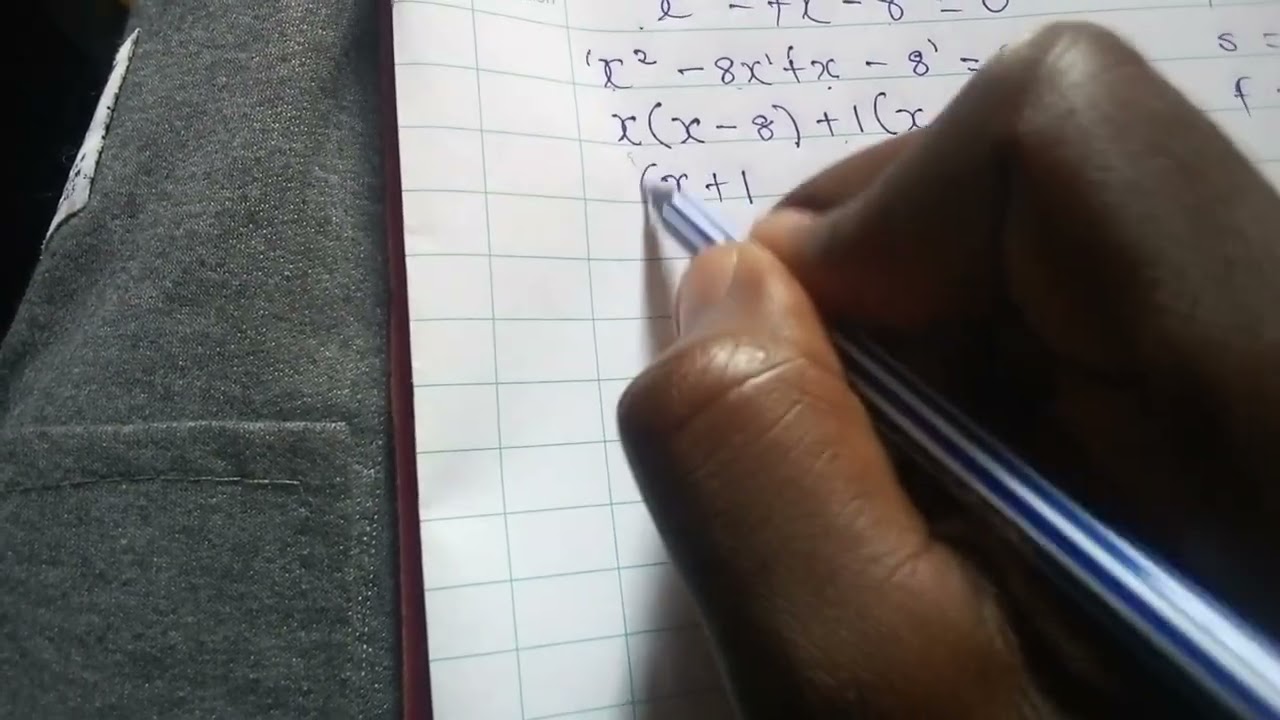 x² - 7x - 8 = 0
'x² - 8x' + 'x - 8' =
x(x - 8) + 1(x
(x + 1
s =
f